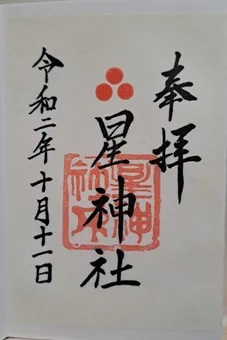 奉拝
星神社
令和二年十月十一日